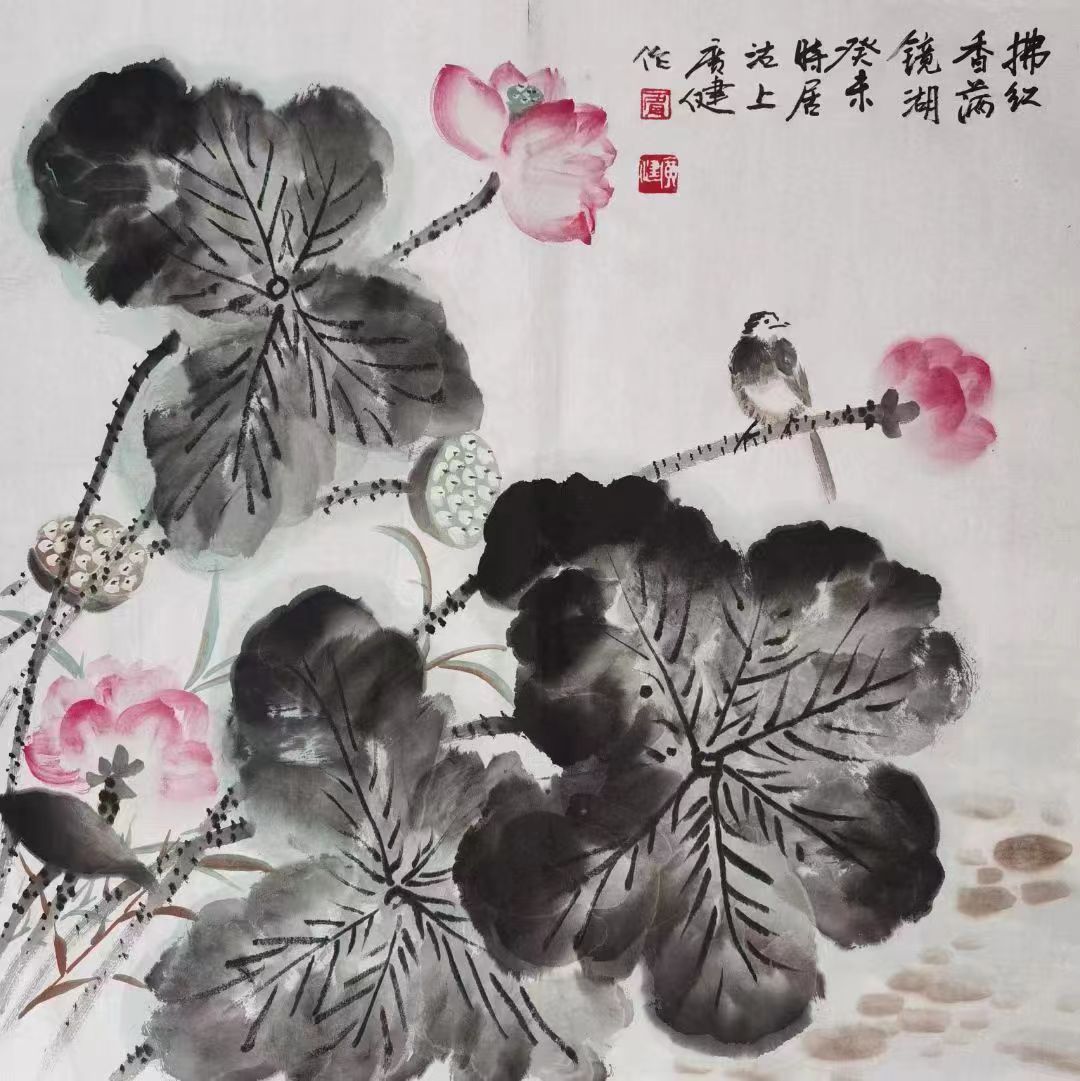 拂红
香满
镜湖
癸未
时居
沽上
广健
作
廣健